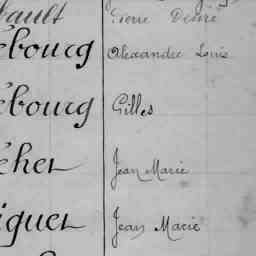 bault Pierre Désiré
ébourg Alexandre Louis
ébourg Gilles
éher Jean Marie
iguer Jean Marie